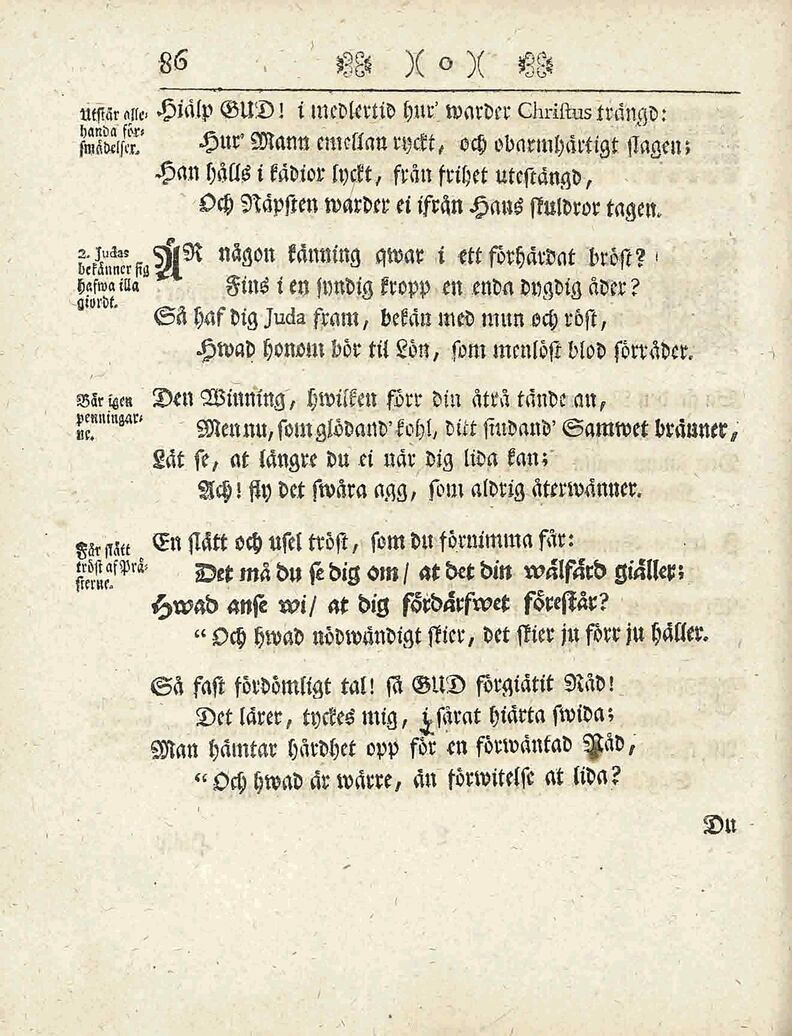 86 )( o )(
Utstår alle-
handa för-
smädelser.
Hjälp GUD! i medlertid hur' warder Christus trängd:
Hur' Mann emellan ryckt, och obarmhärtigt slagen;
Han hålls i kädior lyckt, från frihet utestängd,
Och Näpsten warder ei ifrån Hans skuldror tagen.
2. Judas
bekänner sig
hafwa illa
giordt.
ÄR någon känning qwar i ett förhärdat bröst?
Fins i en syndig kropp en enda dygdig åder?
Så haf dig Juda fram, bekän med mun och röst,
Hwad honom bör til Lön, som menlöst blod förråder.
Bär igen
penningar-
ne.
Den Winning, hwilken förr din åtrå tände an,
Men nu, som glödand' kohl, ditt siudand' Samwet bränner,
Låt se, at längre du ei när dig lida kan;
Ach! fly det swåra agg, som aldrig återwänner.
Får slätt
tröst af Prä-
sterne.
En slätt och usel tröst, som du förnimma får:
Det må du se dig om/ at det din wälfärd giäller;
Hwad anse wi/ at dig fördärfwet förestår?
“Och hwad nödwändigt skier, det skier ju förr ju häller.
Så fast fördömligt tal! så GUD förgiätit Råd!
Det lärer, tyckes mig, i sårat hiärta swida;
Man hämtar hårdhet opp för en förwäntad Nåd,
“Och hwad är wärre, än förwitelse at lida?
Du